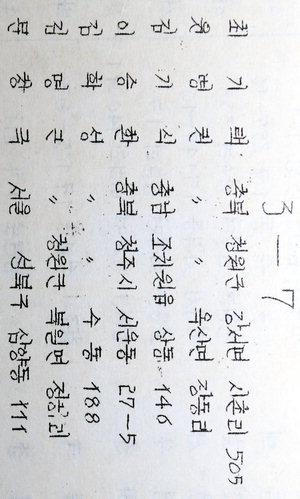 3-7
최기택 충북 청원군 강서면 서촌리 505
〃 〃 옥산면 장동리
김기식 충남 조치원읍 상동 146
이승환 충북 청주시 서운동 27-5
김학성 〃 〃 수동 188
김명근 〃 청원군 북일면
문창극 서울 성북구 삼양동 111